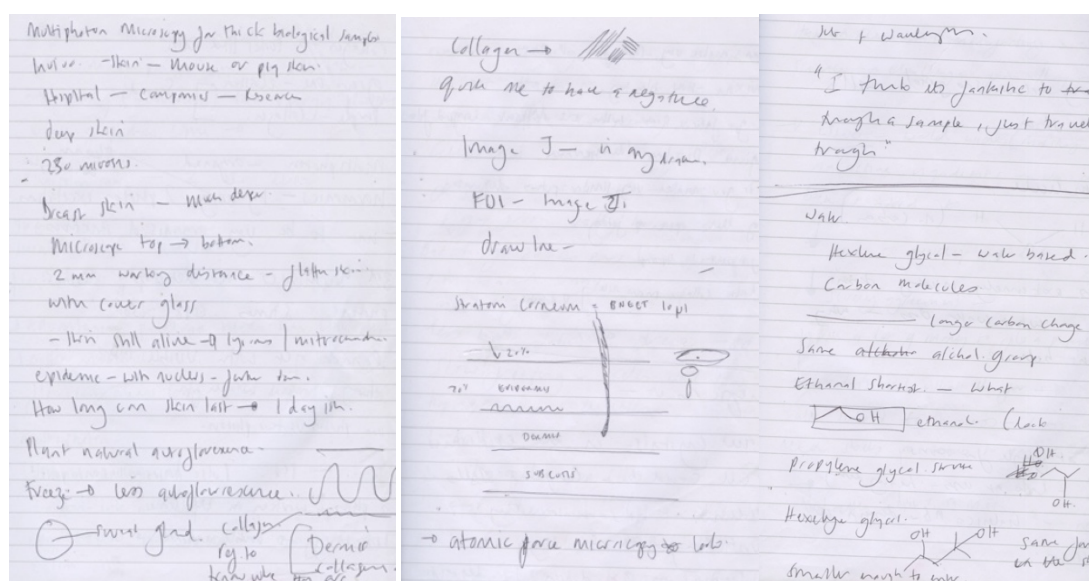 Multiphoton Microscopy for thick biological samples
- skin - mouse or pig skin.
Hospital - companies - Research
deep skin
250 microns.
Breast skin - much deeper
Microscope top → bottom.
2 mm working distance - flatten skin
with cover glass
- skin still alive → / mitrocondria
epidermis - with nucleus - further down.
How long can skin last → 1 day ish.
Plant natural autoflorexence.
Freeze → less autoflourexence.
sweat gland.
Collagen
Dermis
collagen
Collagen →
me to have a negative.
Image J - in
FIJI - Image J
draw line -
Stratum Corneum =
↓ 20%
70% EPIDERMIS
DERMIS
SUBCUTIS
→ atomic force microscopy to look
"I think its fantastic to
through a sample, just travel
trough"
Water
Hexlene glycol - water based.
Carbon molecules
Longer carbon change
Same alchol group
Ethanal shortest - what
OH ethanol
Propylene glycol
OH
OH.
Hexelyge glycol.
OH
OH
same
smaller enough to enter